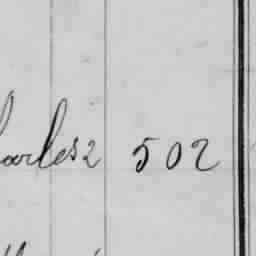 harles 2 502